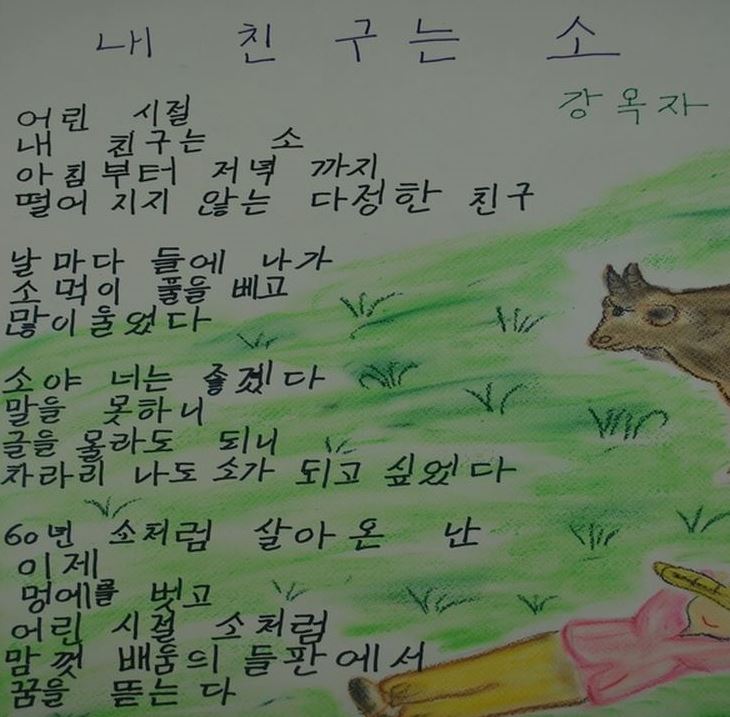 내 친구는 소
강옥자
어린 시절
내 친구는 소
아침부터 저녁 까지
떨어 지지 않는 다정한 친구
날마다 들에 나가
소먹이 풀을 베고
많이울었다
소야 너는 좋겠다
말을 못하니
글을 몰라도 되니
차라리 나도 소가 되고 싶었다
60년 소처럼 살아온 난
이제
멍에를 벗고
어린 시절 소처럼
맘껏 배움의 들판에서
꿈을 뜯는다